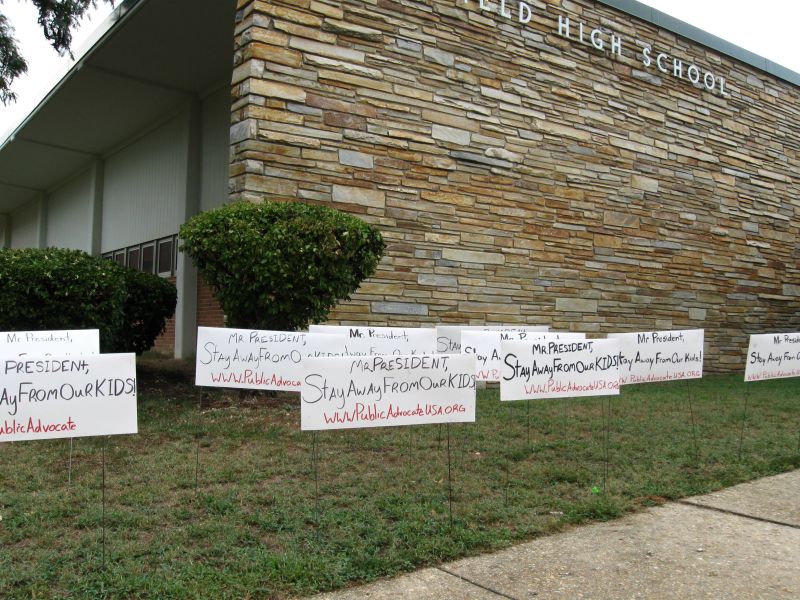 FIELD HIGH SCHOOL
Mr. President
PRESIDENT,
Stay Away From Our KIDS!
Public Advocate
Mr. President,
Stay Away From
WWW.Public
Mr. President,
Mr. PRESIDENT,
Stay Away From Our KIDS!
WWW.PublicAdvocateUSA.ORG
Mr.
Stay Away
Mr. PRESIDENT,
Stay Away From Our KIDS!
WWW.PublicAdvocateUSA.ORG
Mr. President,
Stay Away From Our Kids!
Mr. President
Stay Away From
www.Public